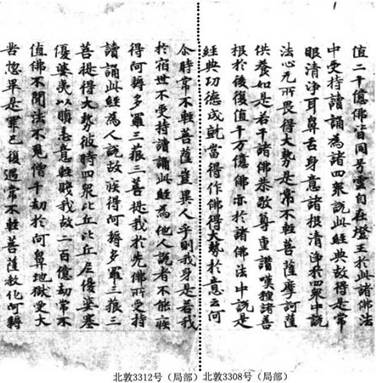 值二千億佛皆同号雲自在燈王於此諸佛法
中受持讀誦為諸四衆說此經典故得是常
眼清淨耳鼻舌身意諸根清淨於四衆中說
法心无所畏得大勢是常不輕菩薩摩訶薩
供養如是若干諸佛恭敬尊重讃歎種諸善
根於後復值千万億佛亦於諸佛法中說是
經典功德成就當得作佛得大勢於意云何
尒時常不輕菩薩豈異人乎則我身是若我
於宿世不受持讀誦此經為他人說者不能疾
得阿耨多羅三藐三菩提我於先佛所受持
讀誦此經為人說故疾得阿耨多羅三藐三
菩提得大勢彼時四衆比丘比丘尼優婆塞
優婆夷以瞋恚意輕賤我故二百億劫常不
值佛不聞法不見僧千劫於阿鼻地獄受大
苦惱畢是罪已復遇常不輕菩薩教化阿耨
北敦3312号（局部）
北敦3308号（局部）